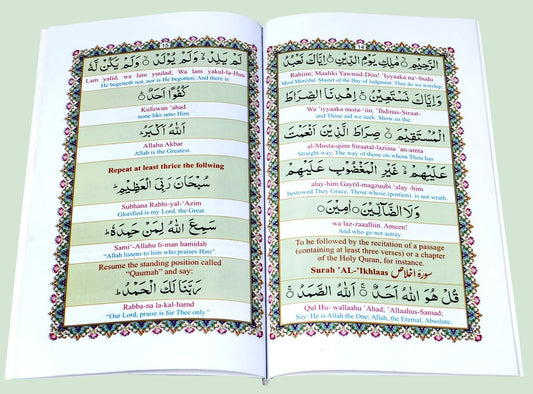 الرَّحِيْمِ ۙ مٰلِكِ يَوْمِ الدِّيْنِ ۙ اِيَّاكَ نَعْبُدُ
Rahiim; Maaliki Yawmid-Diin! 'Iyyaaka na'-budu
Most Merciful. Master of the Day of Judgment; Thee do we worship,
وَاِيَّاكَ نَسْتَعِيْنُ ۙ اِهْدِنَا الصِّرَاطَ
Wa 'iyyaaka nasta-'iin. 'Ihdinas-Siraat-
and Thine aid we seek. Show us the
الْمُسْتَقِيْمَ ۙ صِرَاطَ الَّذِيْنَ اَنْعَمْتَ
al-Musta-qiim Siraatal-laziina 'an-amta
Straight way, The way of those on whom Thou has
عَلَيْهِمْ ۙ غَيْرِ الْمَغْضُوْبِ عَلَيْهِمْ
alay-him Gayril-magzuubi 'alay -him
bestowed They Grace, Those whose (portion) is not wrath.
وَلَا الضَّآلِّيْنَ ۙ اٰمِيْنَ ۙ
wa laz-zaaalliin. Ameen!
And who go not astray.
To be followed by the recitation of a passage
(containing at least three verses) or a chapter
of the Holy Quran, for instance.
Surah 'AL-'Ikhlaas سورة اخلاص
قُلْ هُوَ اللّٰهُ اَحَدٌ ۚ اَللّٰهُ الصَّمَدُ ۚ
Qul Hu- wallaahu 'Ahad; 'Allaahus-Samad;
Say: He is Allah the One; Allah, the Eternal, Absolute;
15
لَمْ يَلِدْ ۙ وَلَمْ يُوْلَدْ ۙ وَلَمْ يَكُنْ لَّهٗ
Lam yalid, wa lam yuulad; Wa lam yakul-la-Huu
He begeteth not, nor is He begotten; And there is
كُفُوًا اَحَدٌ
Kufuwan 'ahad.
none like unto Him
اَللّٰهُ اَكْبَرُ
Allahu Akbar
Allah is the Greatest.
Repeat at least thrice the follwing
سُبْحَانَ رَبِّيَ الْعَظِيْمِ
Subhana Rabbi-yal-'Azim
Glorified is my Lord, the Great
سَمِعَ اللّٰهُ لِمَنْ حَمِدَهٗ
Sami'-Allahu li-man hamidah
"Allah listens to him who praises Him".
Resume the standing position called
"Qaumah" and say:
رَبَّنَا لَكَ الْحَمْدُ
Rabba-na la-kal-hamd
"Our Lord, praise is for Thee only."